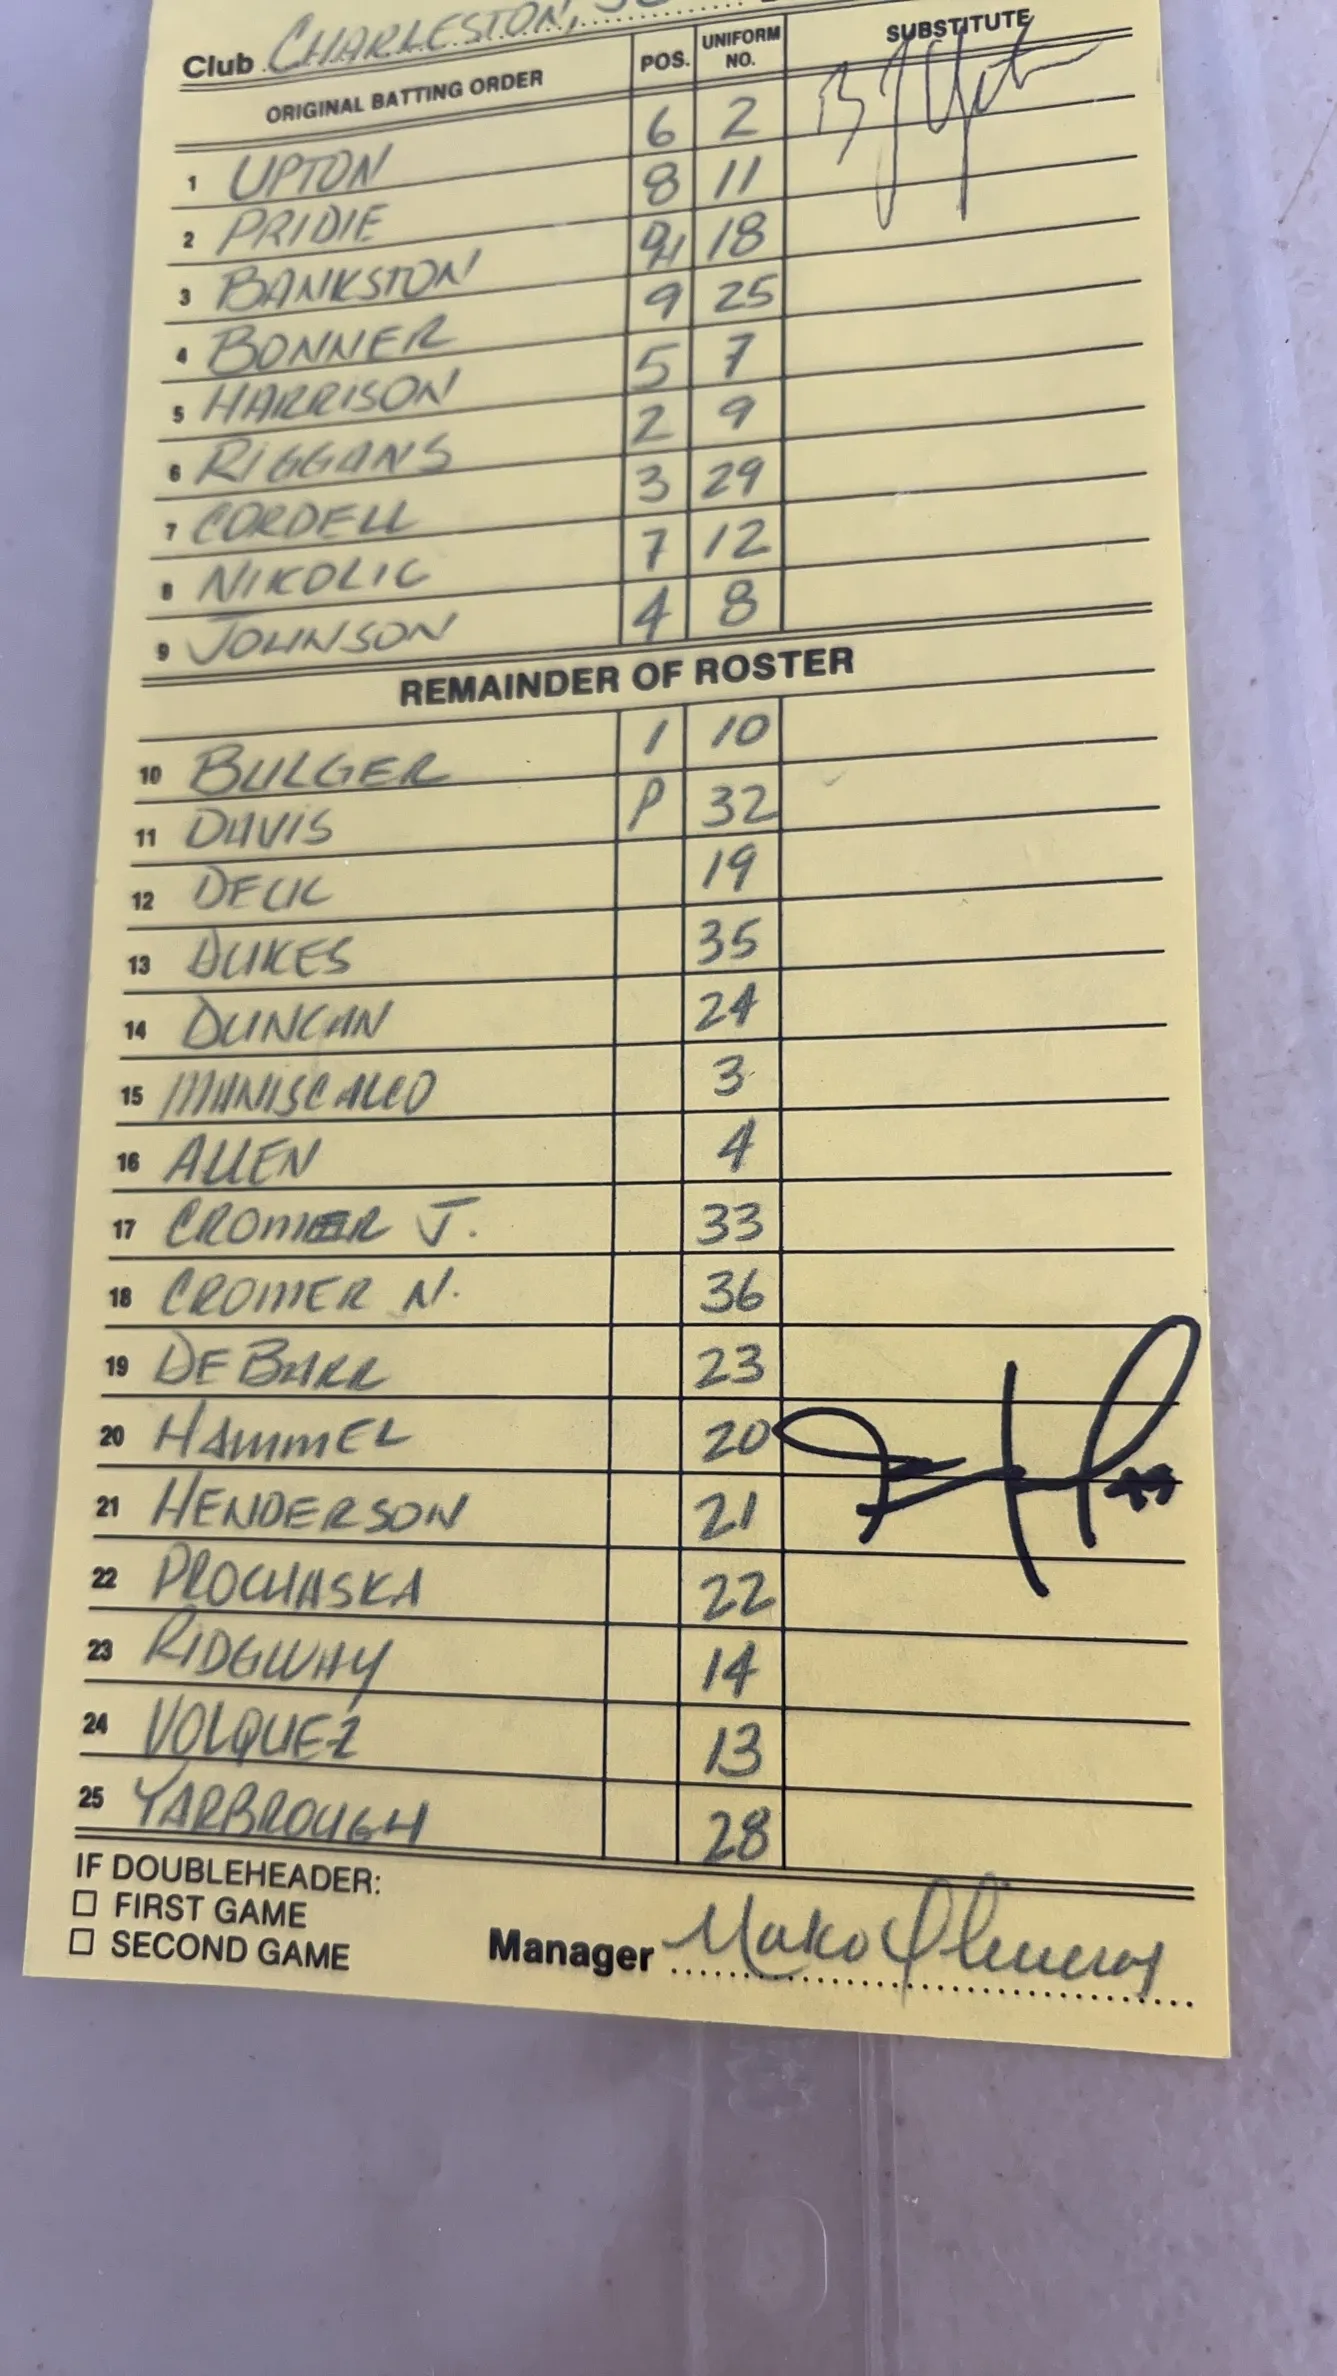 Club CHARLESTON,
ORIGINAL BATTING ORDER POS. UNIFORM NO. SUBSTITUTE
1 UPTON 6 2 BJ Upton
2 PRIDIE 8 11
3 BANKSTON DH 18
4 BONNER 9 25
5 HARRISON 5 7
6 RIGGANS 2 9
7 CORDELL 3 29
8 NIKOLIC 7 12
9 JOHNSON 4 8
REMAINDER OF ROSTER
10 BULGER 1 10
11 DAVIS P 32
12 DECIC 19
13 DUKES 35
14 DUNCAN 24
15 MANISCALCO 3
16 ALLEN 4
17 CROMER J. 33
18 CROMER N. 36
19 DEBARR 23
20 HAMMEL 20
21 HENDERSON 21
22 PROCHASKA 22
23 RIDGWAY 14
24 VOLQUEZ 13
25 YARBROUGH 28
IF DOUBLEHEADER:
□ FIRST GAME
□ SECOND GAME
Manager Mako Oliveras